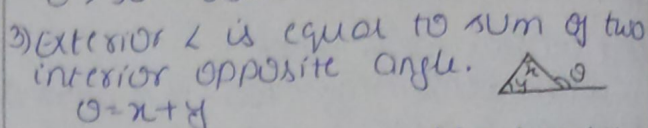 3) Exterior ∠ is equal to sum of two
interior opposite angle.
x y θ
θ = x + y